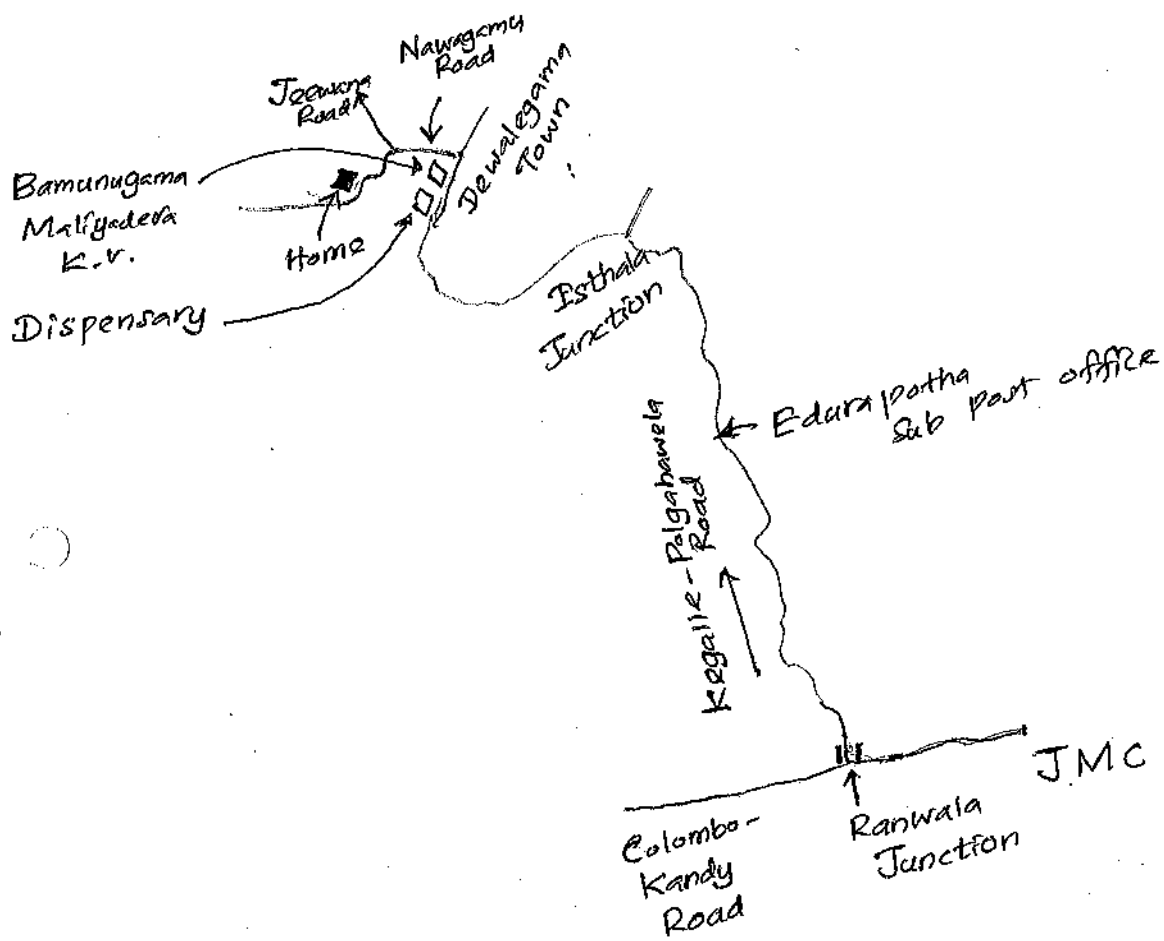 Nawagamu
Road
Jeewana
Road
Dewalegama
Town
Bamunugama
Maliyadeva
K.V.
Home
Dispensary
Esthala
Junction
Edurapotha
Sub post office
Kegalle - Polgahawela
Road
JMC
Ranwala
Junction
Colombo-
Kandy
Road